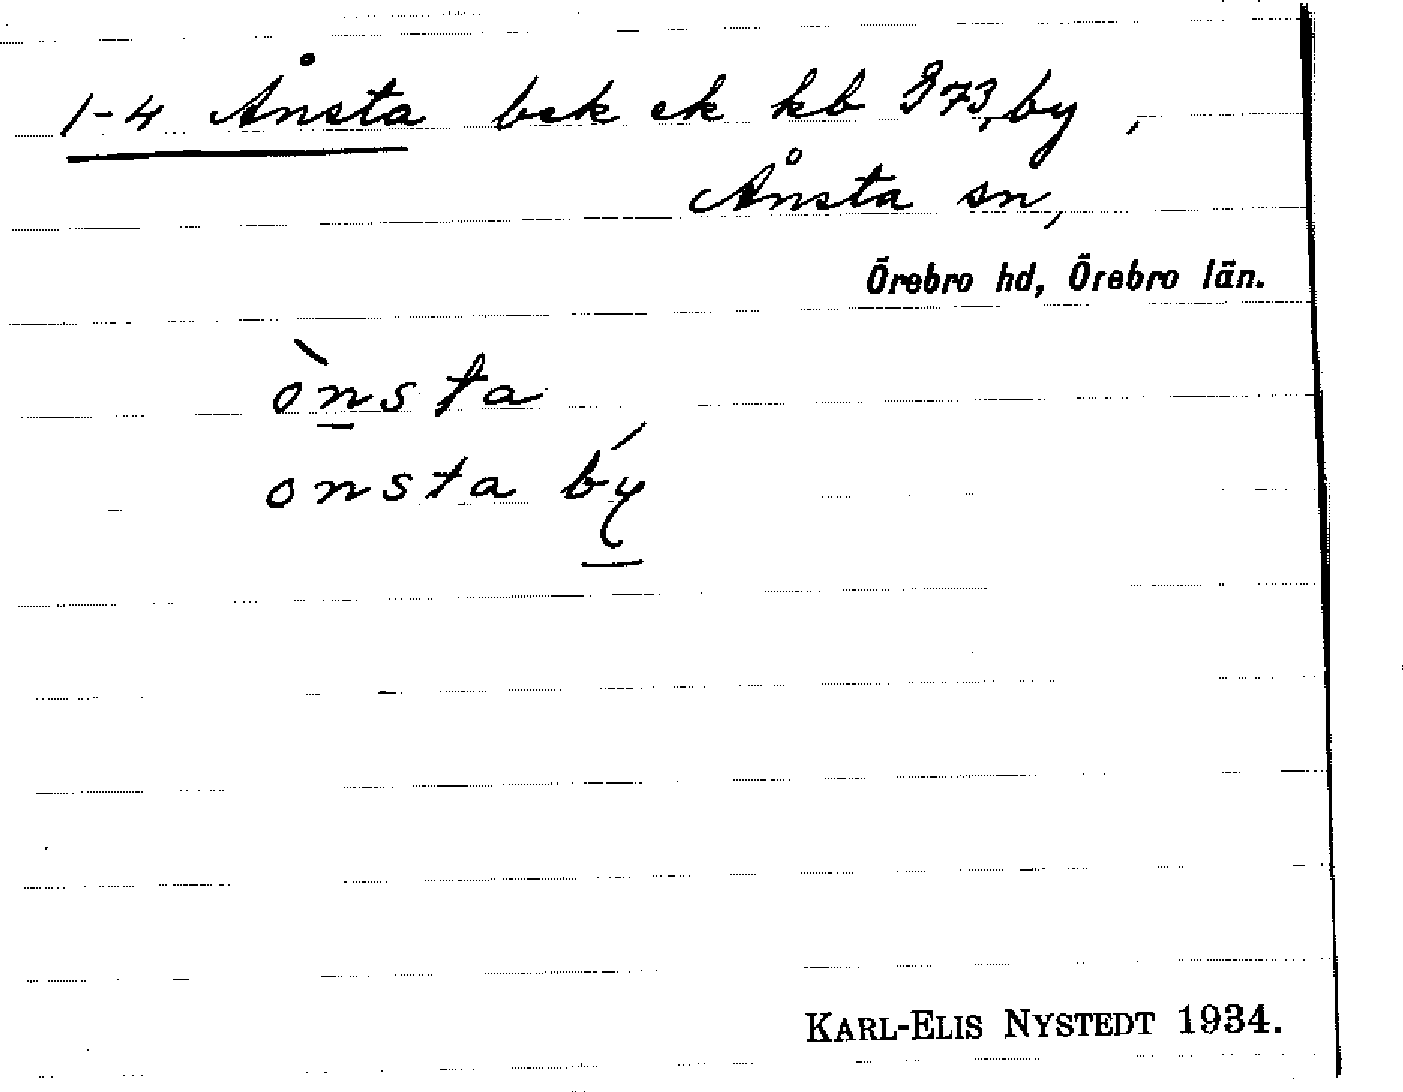 1-4 Ånsta bek ek kb I 73, by,
Ånsta sn,
Örebro hd, Örebro län.
ònsta
onsta bý
KARL-ELIS NYSTEDT 1934.